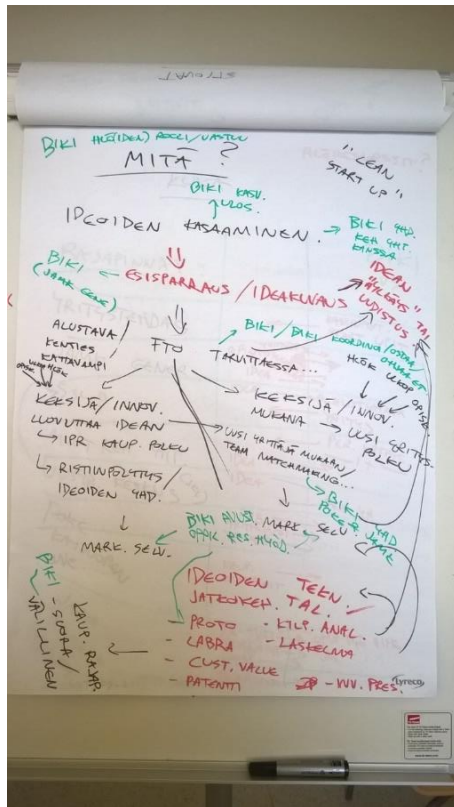 BIKI HLÖ(IDEN) ROOLI/VASTUU
MITÄ?
"LEAN
START UP"
BIKI KASV.
ULOS.
IDEOIDEN KASAAMINEN.
BIKI YHD.
KEH. YHT.
KANSSA
BIKI
ESISPARRAUS / IDEAKUVAUS
IDEAN
"HYLKÄYS" TAI
UUDISTUS
ALUSTAVA/
KENTIES
KATTAVAMPI
FTO
BIKI/
KOORDINOI/OSTAA/
TARVITTAESSA...
HLÖK
UKOP
OPISK.
KEKSIJÄ/INNOV.
LUOVUTTAA IDEAN
IPR KAUP. POLKU
KEKSIJÄ/INNOV.
MUKANA → UUSI YRITYS-
POLKU
UUSI YRITTÄJÄ MUKAAN/
TEAM MATCHMAKING...
RISTIINPÖLYTYS/
IDEOIDEN YHD.
BIKI
MARK. SELV.
BIKI AVUST.
MARK. SELV.
IDEOIDEN TEKN./
JATKOKEH. TAL.
- PROTO - KILP. ANAL.
- LABRA - LASKELMA
- CUST. VALUE
- PATENTTI - INV. PRES.
KAUP. RAJAP.
BIKI - SUORA/
VÄLILLINEN
Lyreco